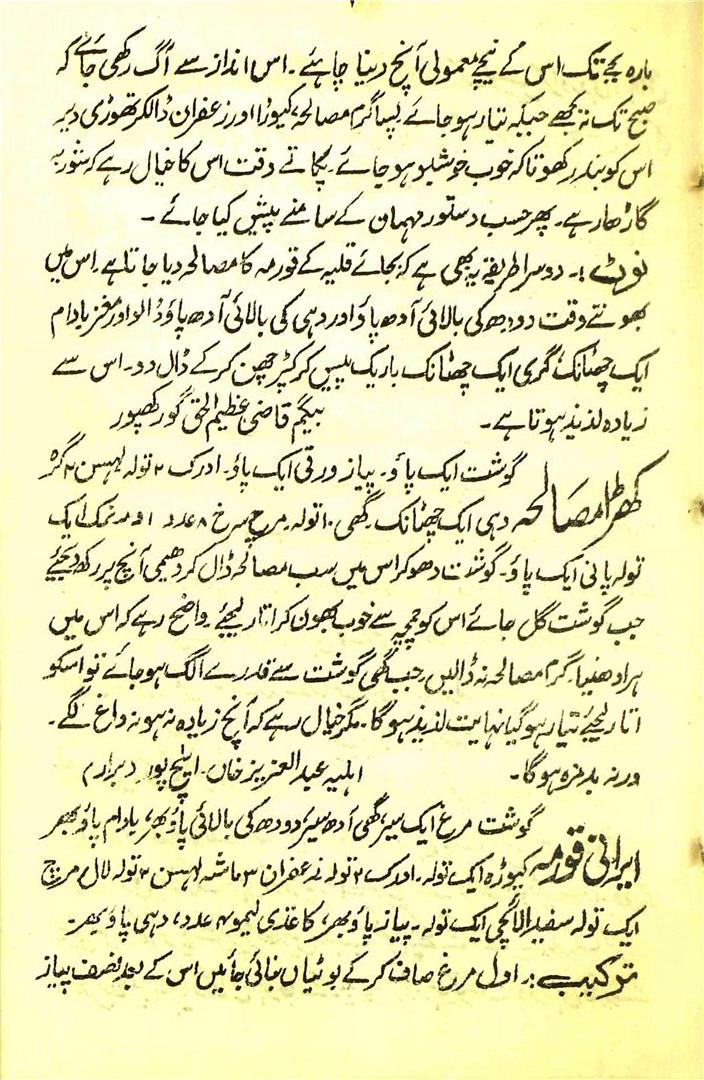 بارہ بجے تک اس کے نیچے معمولی آنچ دینا چاہئے۔ اس انداز سے آگ رکھی جائے کہ
صبح تک نہ بجھے جبکہ تیار ہو جائے پسا گرم مصالحہ، کیوڑا اور زعفران ڈالکر تھوڑی دیر
اس کو بند رکھو تاکہ خوب خوشبو ہو جائے۔ پکاتے وقت اس کا خیال رہے کہ شوربہ
گاڑھا رہے۔ پھر حسب دستور مہمان کے سامنے پیش کیا جائے ۔
نوٹ :۔ دوسرا طریقہ یہ بھی ہے کہ بجائے قلیہ کے قورمہ کا مصالحہ دیا جاتا ہے۔ اس میں
بھونتے وقت دودھ کی بالائی آدھ پاؤ اور دہی کی بالائی آدھ پاؤ ڈالو اور مغز بادام
ایک چھٹانک، گری ایک چھٹانک باریک پیس کر کپڑ چھن کر کے ڈال دو۔ اس سے
زیادہ لذیذ ہوتا ہے۔ بیگم قاضی عظیم الحق گورکھپور
کھڑا مصالحہ گوشت ایک پاؤ۔ پیاز ورقی ایک پاؤ۔ ادرک ۲ تولہ لہسن ۲ گرہ
دہی ایک چھٹانک۔ گھی ۱۰ تولہ۔ مرچ سرخ ۸ عدد نمک ایک
تولہ پانی ایک پاؤ۔ گوشت دھو کر اس میں سب مصالحہ ڈال کر دھیمی آنچ پر رکھ دیجئے
جب گوشت گل جائے اس کو چمچہ سے خوب بھون کر اتار لیجئے۔ واضح رہے کہ اس میں
ہرا دھنیا۔ گرم مصالحہ نہ ڈالیں۔ جب گھی گوشت سے قدرے الگ ہو جائے تو اسکو
اتار لیجئے تیار ہو گیا نہایت لذیذ ہوگا۔ مگر خیال رہے کہ آنچ زیادہ نہ ہو نہ داغ لگے۔
ورنہ بدمزہ ہوگا۔ اہلیہ عبدالعزیز خاں۔ ایلچ پور (برار)
ایرانی قورمہ گوشت مرغ ایک سیر، گھی آدھ سیر، دودھ کی بالائی پاؤ بھر، بادام پاؤ بھر
کیوڑہ ایک تولہ۔ ادرک ۲ تولہ زعفران ۳ ماشہ لہسن ۲ تولہ لال مرچ
ایک تولہ سفید الائچی ایک تولہ۔ پیاز پاؤ بھر، کاغذی لیمو ۴ عدد، دہی پاؤ بھر۔
ترکیب :۔ اول مرغ صاف کر کے بوٹیاں بنائی جائیں اس کے بعد نصف پیاز